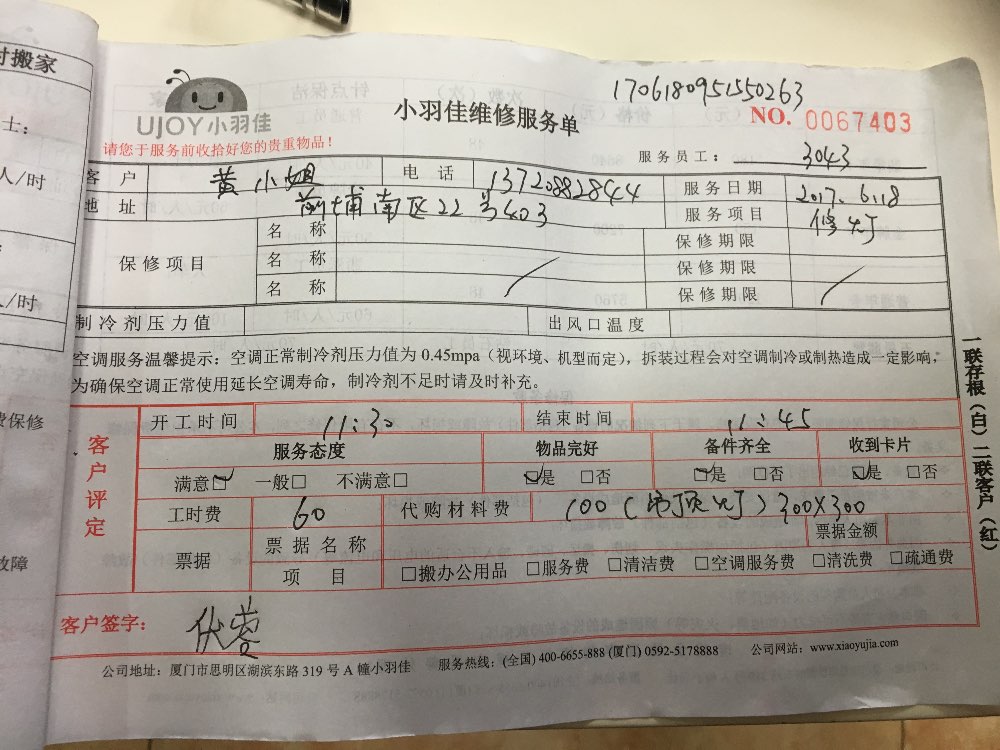 时搬家
士：
人/时
人/时
费保修
故障
1706180951550263
UJOY小羽佳
小羽佳维修服务单
NO. 0067403
请您于服务前收拾好您的贵重物品！
服务员工： 3043
客 户 黄小姐 电 话 13720882844 服务日期 2017.6.18
地 址 前埔南区22号403 服务项目 修灯
保修项目 名 称 保修期限
名 称 保修期限
名 称 保修期限
制冷剂压力值 出风口温度
空调服务温馨提示：空调正常制冷剂压力值为 0.45mpa（视环境、机型而定），拆装过程会对空调制冷或制热造成一定影响，
为确保空调正常使用延长空调寿命，制冷剂不足时请及时补充。
客户评定
开工时间 11:30 结束时间 11:45
服务态度 物品完好 备件齐全 收到卡片
满意☑ 一般□ 不满意□ ☑是 □否 ☑是 □否 ☑是 □否
工时费 60 代购材料费 100（吊顶灯）300X300
票据 票据名称 票据金额
项 目 □搬办公用品 □服务费 □清洁费 □空调服务费 □清洗费 □疏通费
客户签字：
公司地址：厦门市思明区湖滨东路 319 号 A 幢小羽佳 服务热线：(全国) 400-6655-888 (厦门) 0592-5178888 公司网站：www.xiaoyujia.com
一联存根（白）二联客户（红）